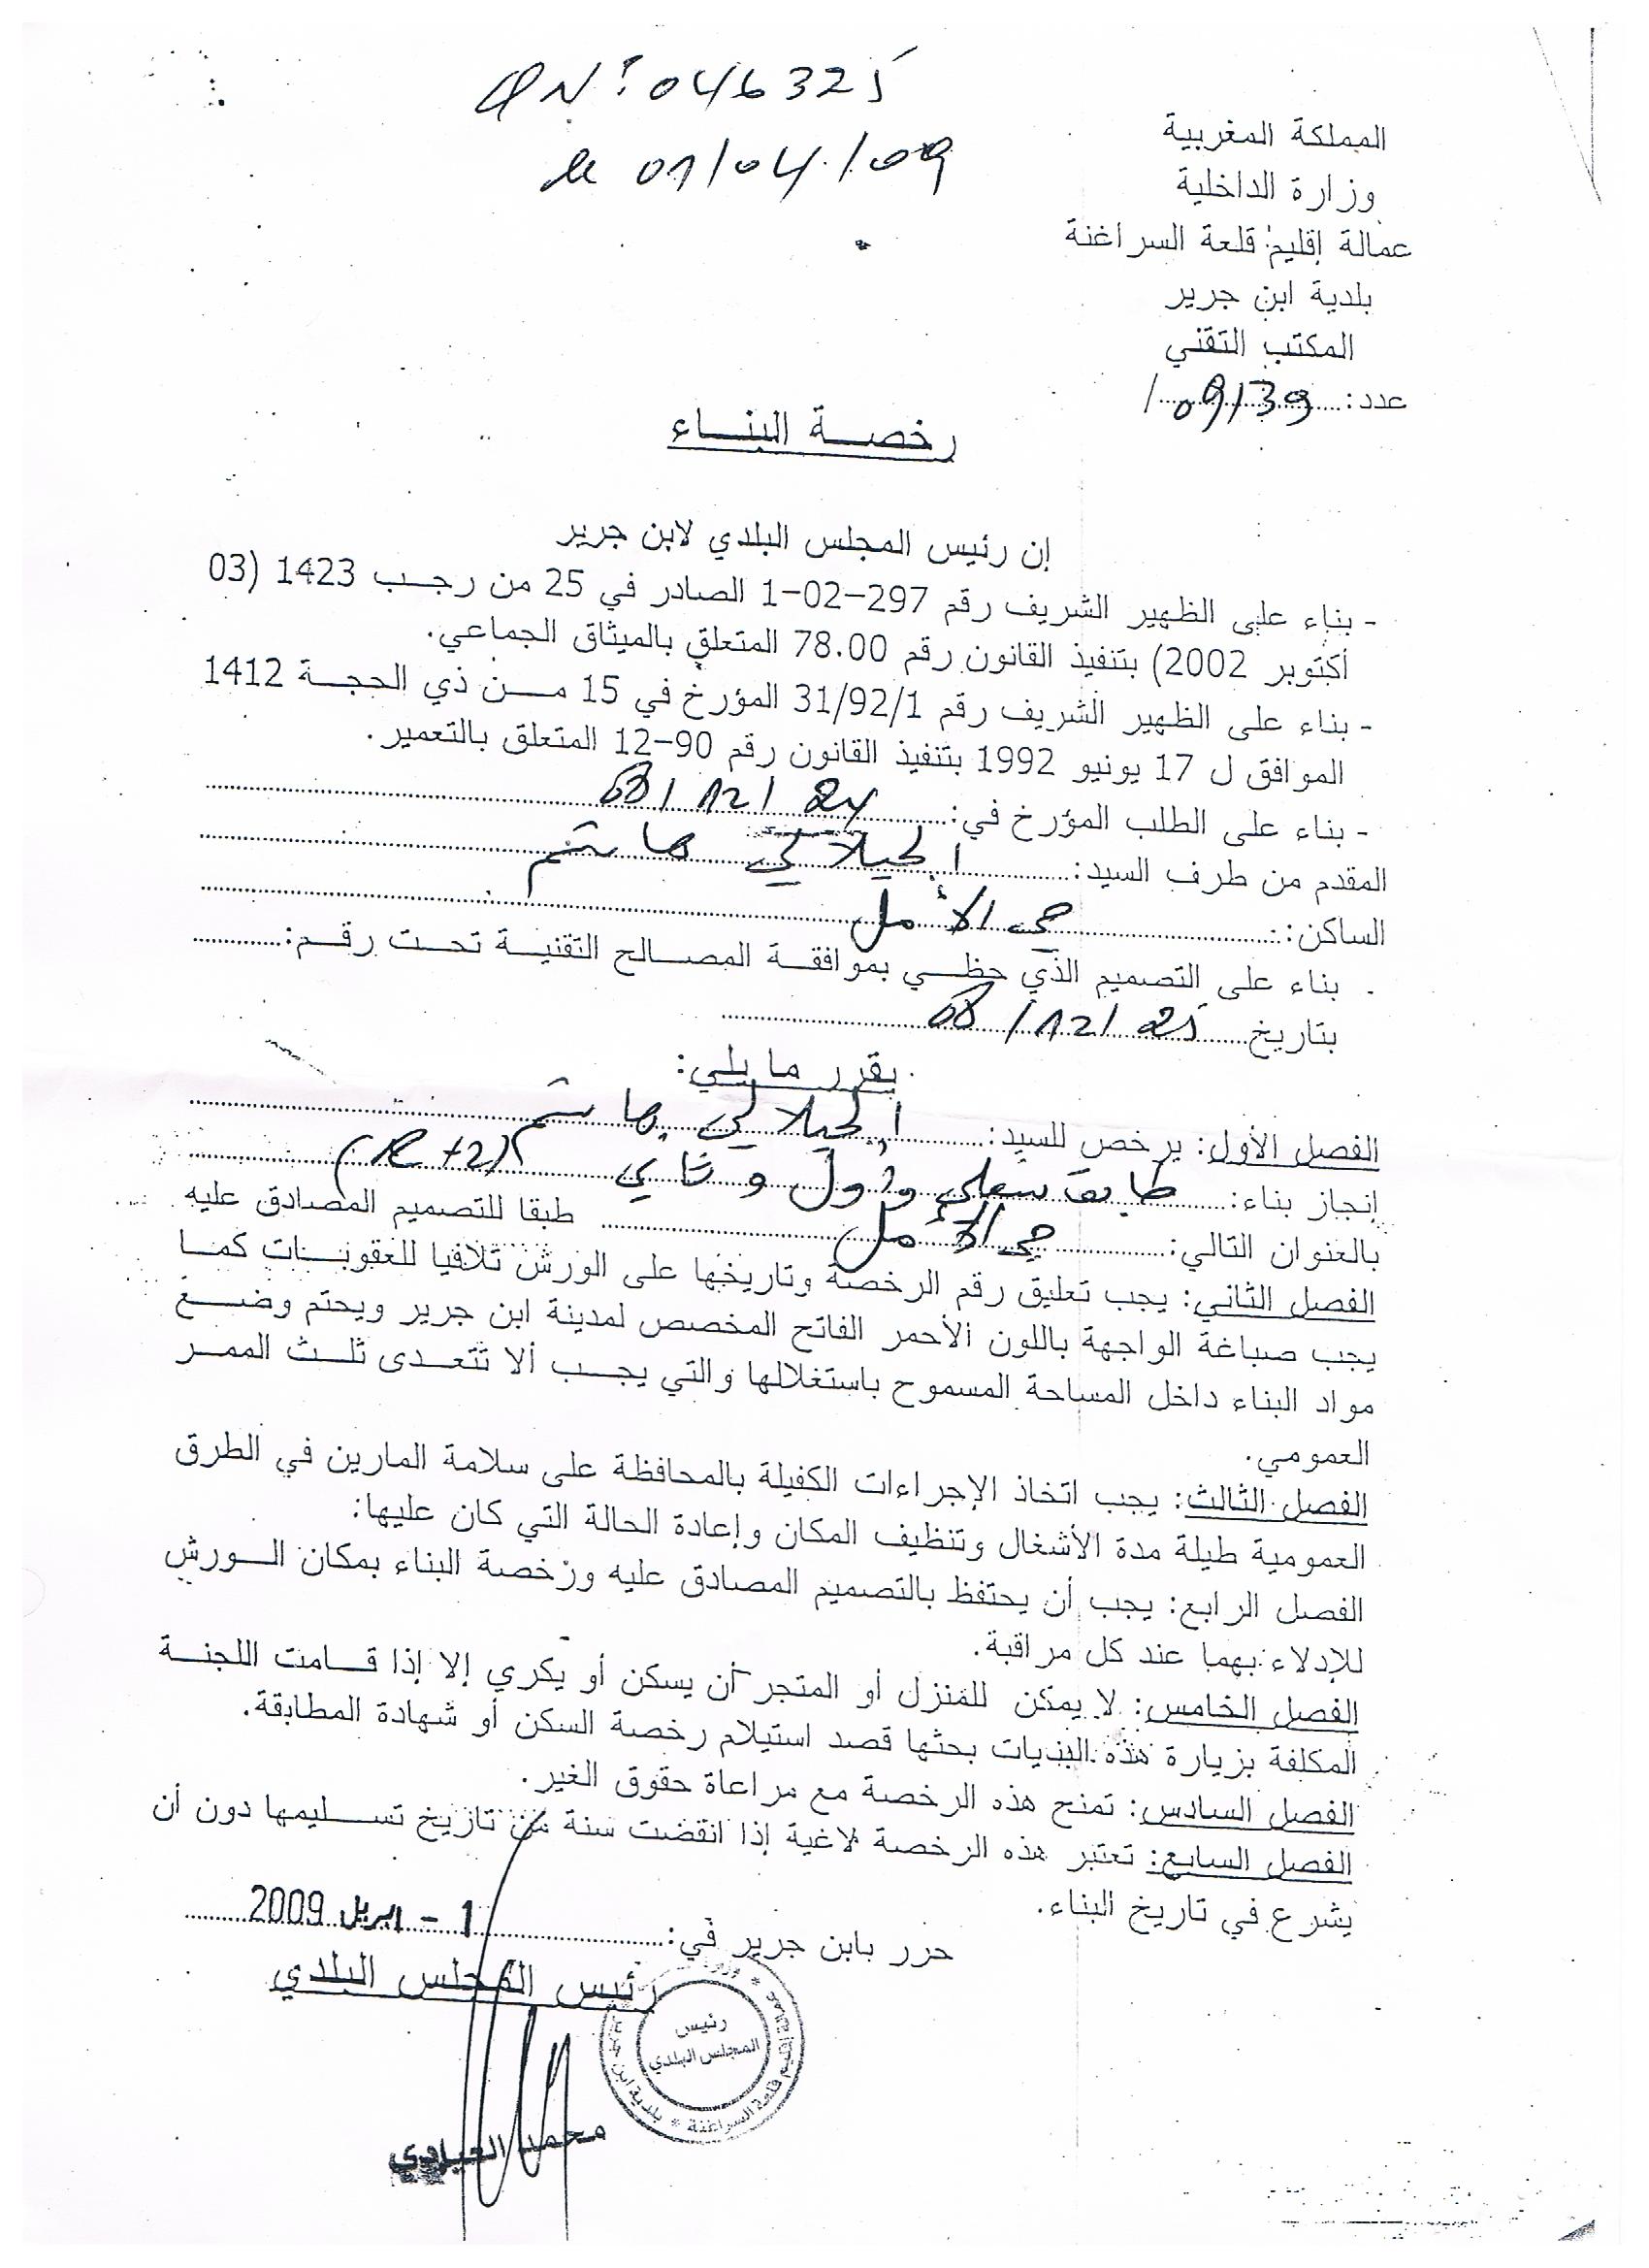 QN° : 046325
le 01/04/09
المملكة المغربية
وزارة الداخلية
عمالة إقليم: قلعة السراغنة
بلدية ابن جرير
المكتب التقني
عدد: 09/39 /
رخصة البناء
إن رئيس المجلس البلدي لابن جرير
- بناء على الظهير الشريف رقم 297-02-1 الصادر في 25 من رجب 1423 (03
أكتوبر 2002) بتنفيذ القانون رقم 78.00 المتعلق بالميثاق الجماعي.
- بناء على الظهير الشريف رقم 31/92/1 المؤرخ في 15 من ذي الحجة 1412
الموافق ل 17 يونيو 1992 بتنفيذ القانون رقم 90-12 المتعلق بالتعمير.
- بناء على الطلب المؤرخ في: 08/12/24
المقدم من طرف السيد: الجيلالي هاشم
الساكن: حي الأمل
. بناء على التصميم الذي حظي بموافقة المصالح التقنية تحت رقم:
بتاريخ 08/12/25
يقرر ما يلي:
الفصل الأول: يرخص للسيد: الجيلالي هاشم
إنجاز بناء: طابق سفلي وأول وثاني (R+2)
بالعنوان التالي: حي الأمل طبقا للتصميم المصادق عليه
الفصل الثاني: يجب تعليق رقم الرخصة وتاريخها على الورش تلافيا للعقوبات كما
يجب صباغة الواجهة باللون الأحمر الفاتح المخصص لمدينة ابن جرير ويحتم وضع
مواد البناء داخل المساحة المسموح باستغلالها والتي يجب ألا تتعدى ثلث الممر
العمومي.
الفصل الثالث: يجب اتخاذ الإجراءات الكفيلة بالمحافظة على سلامة المارين في الطرق
العمومية طيلة مدة الأشغال وتنظيف المكان وإعادة الحالة التي كان عليها:
الفصل الرابع: يجب أن يحتفظ بالتصميم المصادق عليه ورخصة البناء بمكان الورش
للإدلاء بهما عند كل مراقبة.
الفصل الخامس: لا يمكن للمنزل أو المتجر أن يسكن أو يكري إلا إذا قامت اللجنة
المكلفة بزيارة هذه البنيات بحثها قصد استيلام رخصة السكن أو شهادة المطابقة.
الفصل السادس: تمنح هذه الرخصة مع مراعاة حقوق الغير.
الفصل السابع: تعتبر هذه الرخصة لاغية إذا انقضت سنة من تاريخ تسليمها دون أن
يشرع في تاريخ البناء.
حرر بابن جرير في: 1 - ابريل 2009
رئيس المجلس البلدي
رئيس
المجلس البلدي
قلعة السراغنة * بلدية ابن جرير
محمد العيادي